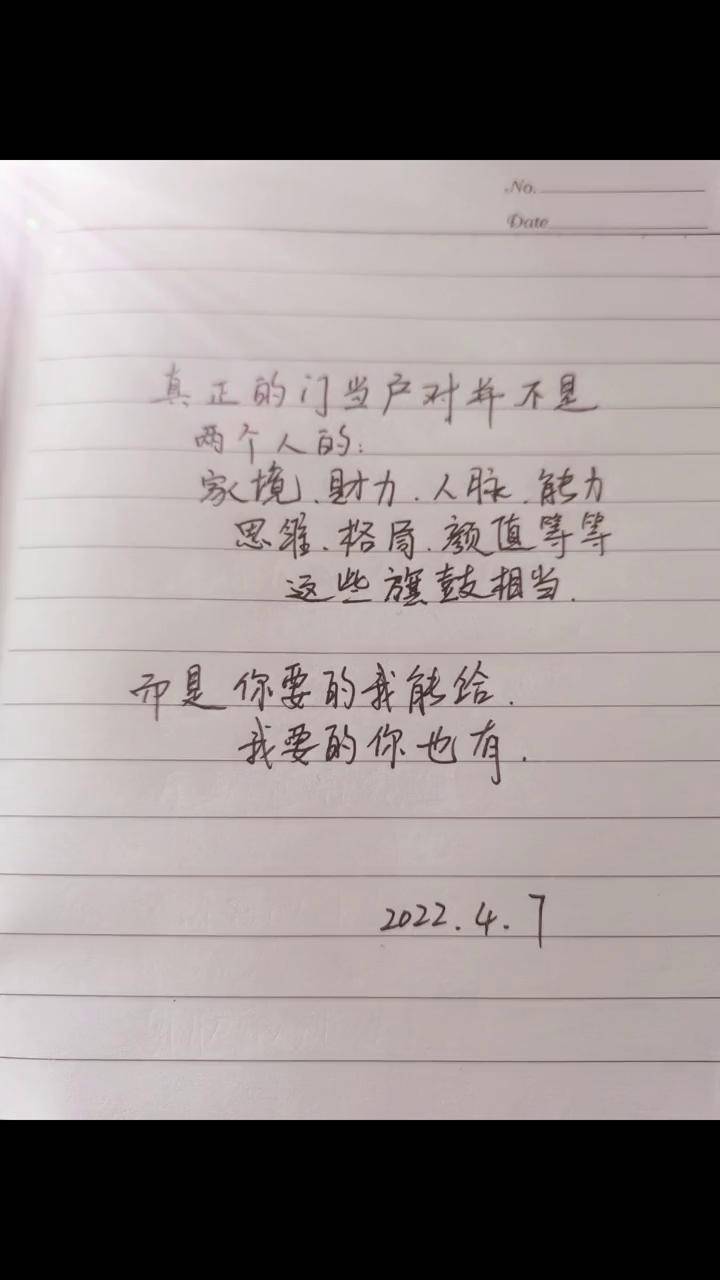 No.
Date
真正的门当户对并不是
两个人的：
家境、财力、人脉、能力
思维、格局、颜值等等
这些旗鼓相当.
而是你要的我能给.
我要的你也有.
2022.4.7